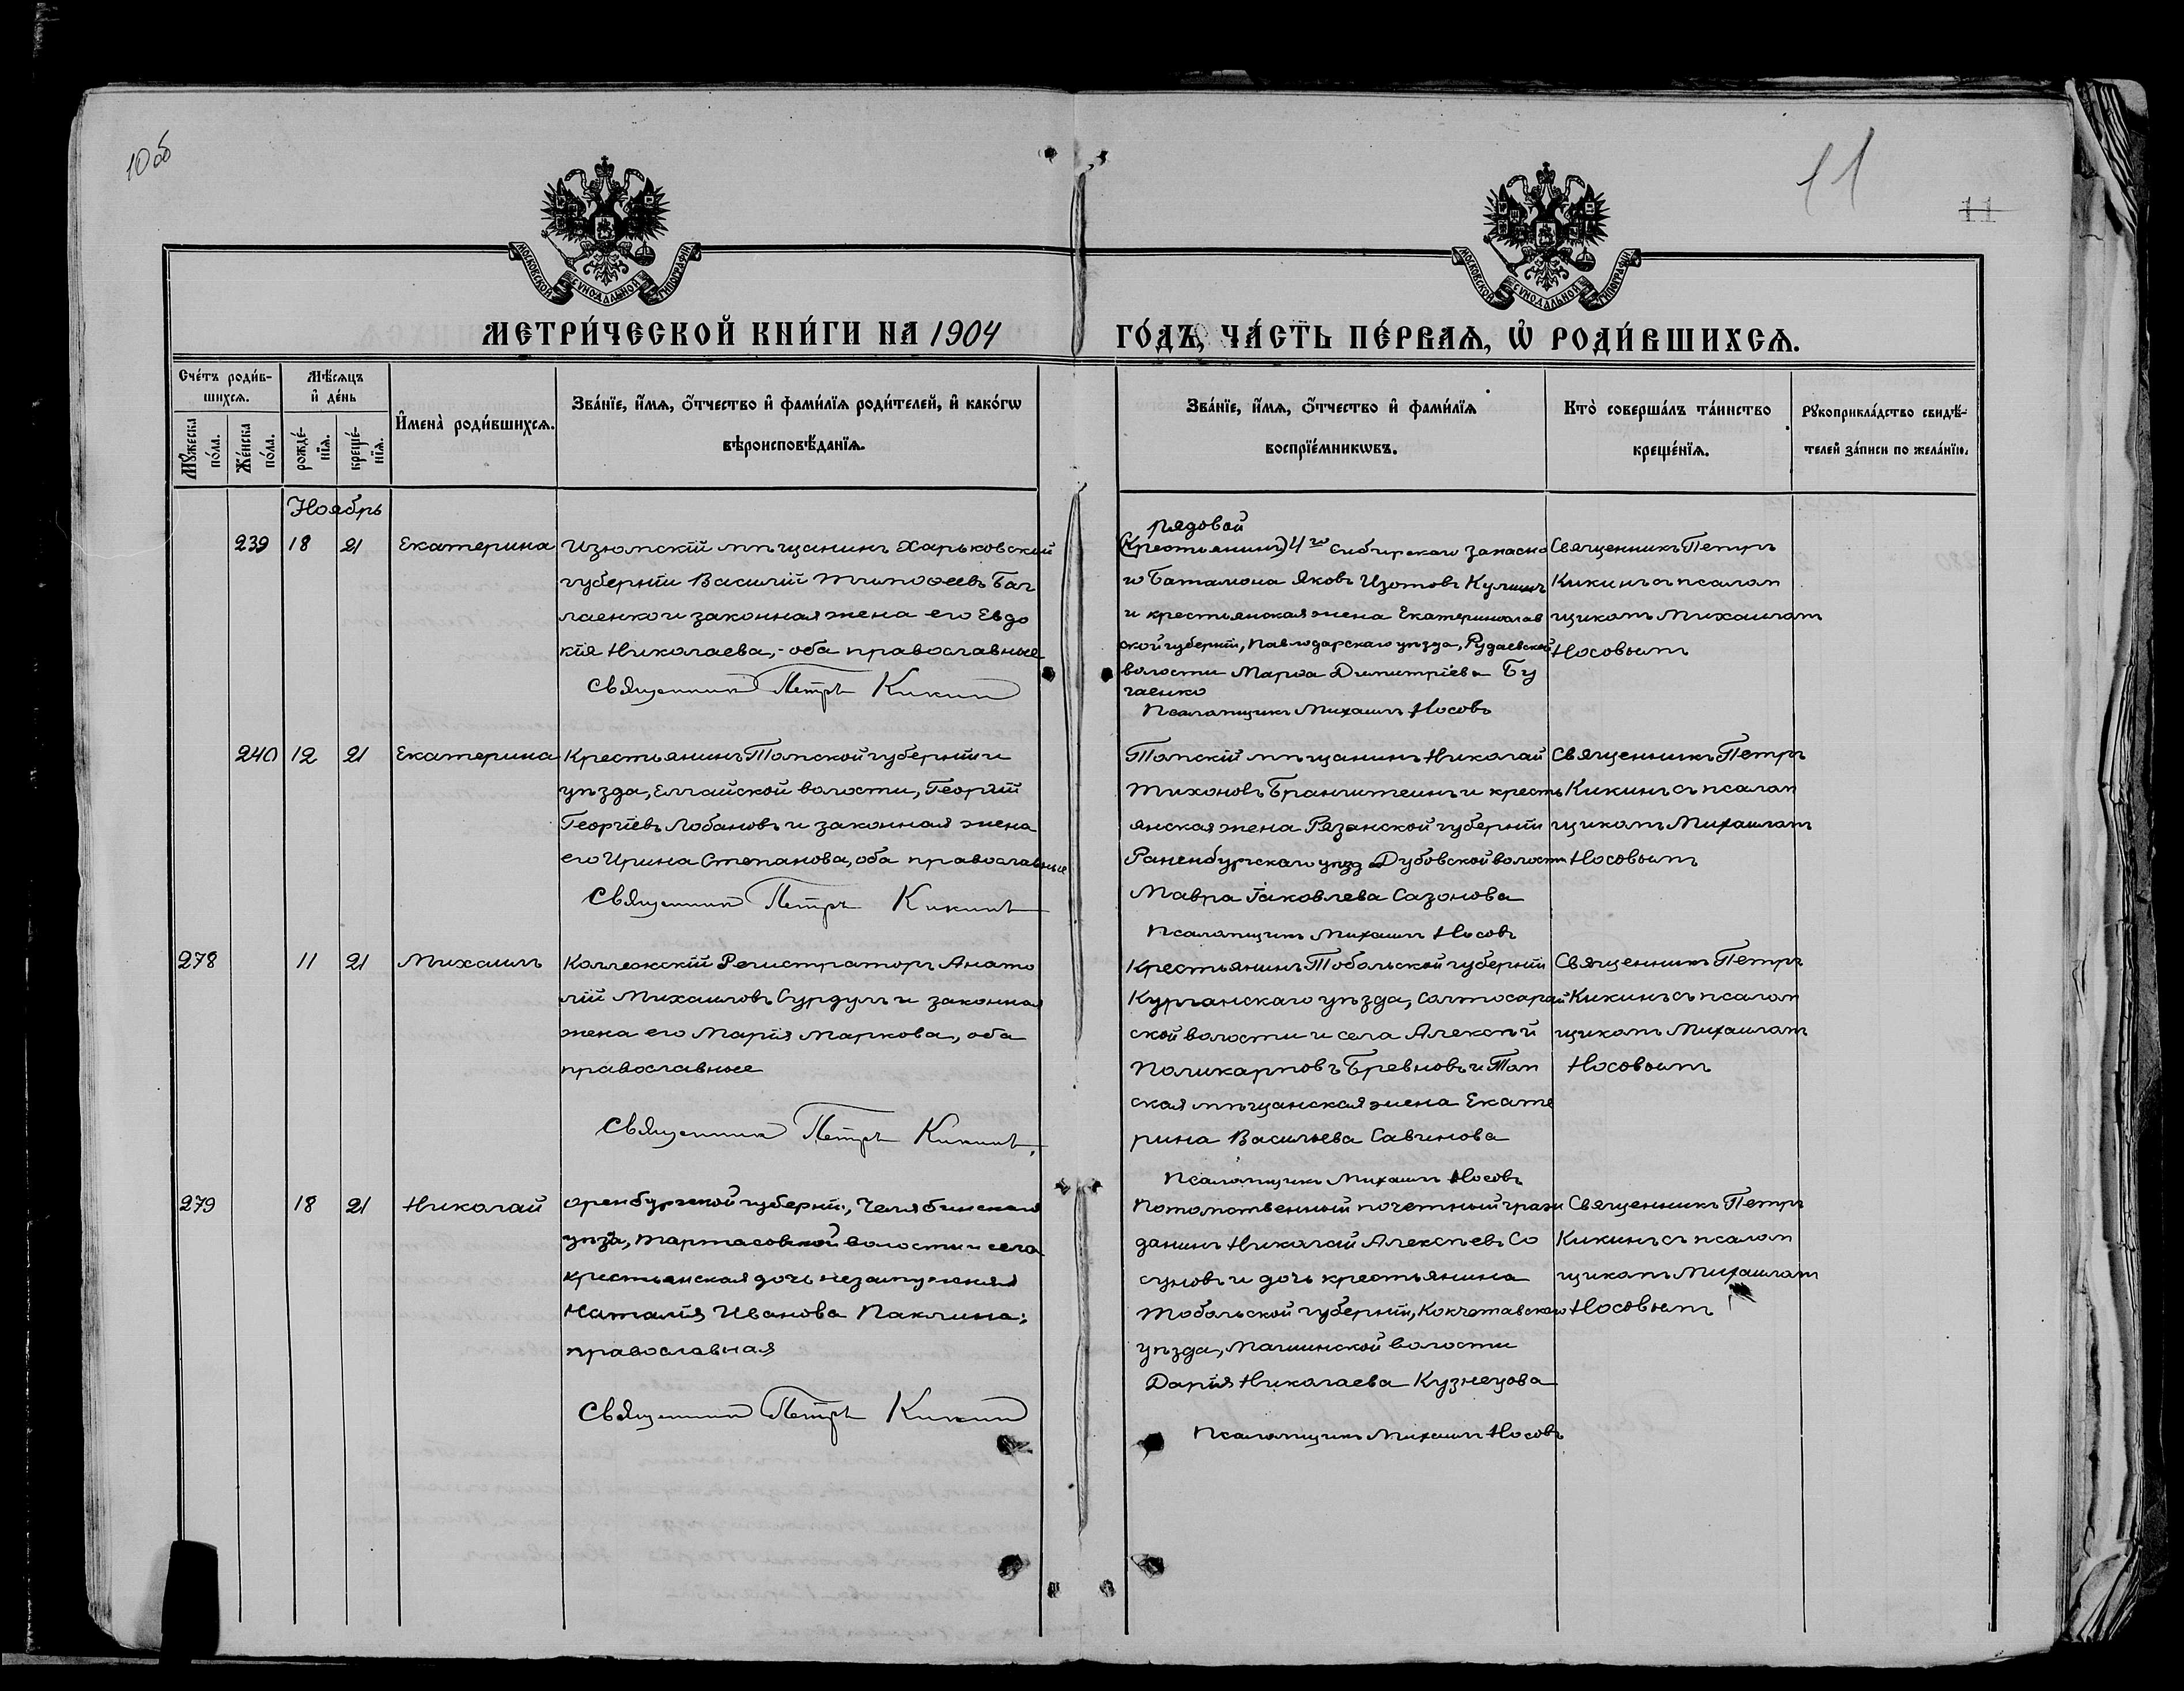 10об
11
11
МОСКОВСКОЙ СѴНОДАЛЬНОЙ ТИПОГРАФІИ
МОСКОВСКОЙ СѴНОДАЛЬНОЙ ТИПОГРАФІИ
МЕТРИ́ЧЕСКОЙ КНИ́ГИ НА 1904 ГО́ДЪ, ЧА́СТЬ ПЕ́РВАѦ, Ѡ҆ РОДИ́ВШИХСѦ.
Сче́тъ роди́в-
шихсѧ.
Мѣ́сѧцъ
и҆ де́нь
Мꙋ́жеска
по́ла.
Же́нска
по́ла.
рожде́-
нїѧ.
креще́-
нїѧ.
И҆мена̀ роди́вшихсѧ.
Зва́нїе, и҆́мѧ, ѻ҆́тчество и҆ фами́лїѧ роди́телей, и҆ како́гѡ
вѣроисповѣ́данїѧ.
Зва́нїе, и҆́мѧ, ѻ҆́тчество и҆ фами́лїѧ
воспрїе́мникѡвъ.
Кто̀ соверша́лъ та́инство
креще́нїѧ.
Рꙋкоприкла́дство свидѣ́-
телей за́писи по жела́нїю.
Ноябрь
239 18 21 Екатерина
Изюмскій мѣщанинъ Харьковской
губерніи Василій Тимофеевъ Бал
лаенко и законная жена его Евдо
кія Николаева, - оба православные
Священникъ Петръ Кикинъ
рядовой
(Крестьянинъ) 4го Сибирскаго запасно
го Баталіона Яковъ Изотовъ Кулишъ
и крестьянская жена Екатеринослав
ской губерніи, Павлодарскаго уѣзда, Рудаевской
волости Марѳа Димитріева Бу
гаенко
Псаломщикъ Михаилъ Носовъ
Священникъ Петръ
Кикинъ съ псалом
щикомъ Михаиломъ
Носовымъ
240 12 21 Екатерина
Крестьянинъ Томской губерніи и
уѣзда, Елгайской волости, Георгій
Георгіевъ Лобановъ и законная жена
его Ирина Степанова, оба православные
Священникъ Петръ Кикинъ
Томскій мѣщанинъ Николай
Тихоновъ Бранчитеинъ и кресть
янская жена Рязанской губерніи
Раненбургскаго уѣзда Дубовской волости
Мавра Іаковлева Сазонова
Псаломщикъ Михаилъ Носовъ
Священникъ Петръ
Кикинъ съ псалом
щикомъ Михаиломъ
Носовымъ
278 11 21 Михаилъ
Коллежскій Регистраторъ Анато
лій Михаиловъ Сурдулъ и законная
жена его Марія Маркова, оба
православные
Священникъ Петръ Кикинъ
Крестьянинъ Тобольской губерніи
Курганскаго уѣзда, Салтосарай
ской волости и села Алексѣй
Поликарповъ Бревновъ и Том
ская мѣщанская жена Екате
рина Васильева Савинова
Псаломщикъ Михаилъ Носовъ
Священникъ Петръ
Кикинъ съ псалом
щикомъ Михаиломъ
Носовымъ
279 18 21 Николай
Оренбургской губерніи, Челябинскаго
уѣзда, Тартасовской волости и села
крестьянская дочь незамужняя
Наталія Иванова Паклина;
православная
Священникъ Петръ Кикинъ
Потомственный почетный граж
данинъ Николай Алексѣевъ Со
суновъ и дочь крестьянина
Тобольской губерніи, Кокчетавскаго
уѣзда, Машинской волости
Дарія Николаева Кузнецова
Псаломщикъ Михаилъ Носовъ
Священникъ Петръ
Кикинъ съ псалом
щикомъ Михаиломъ
Носовымъ